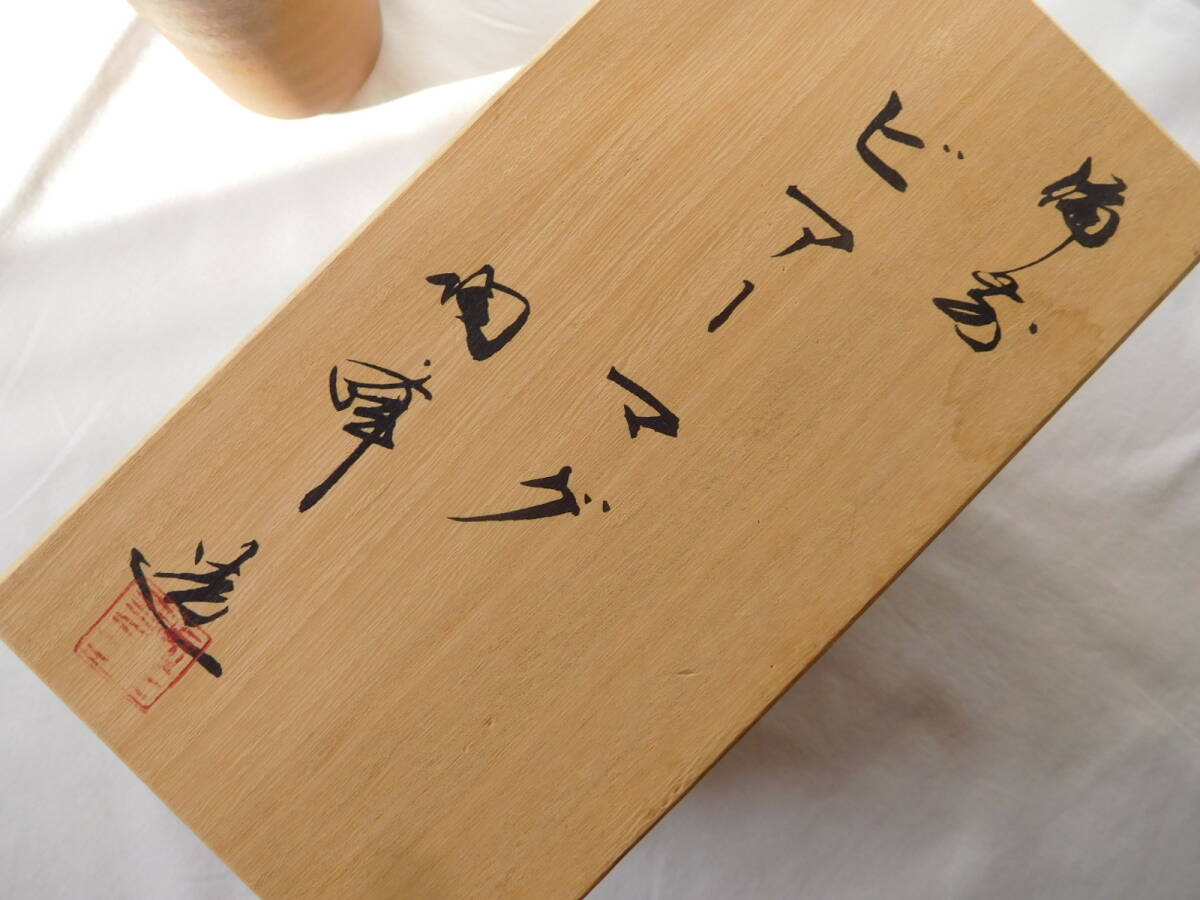 備前
ビアーマグ
造